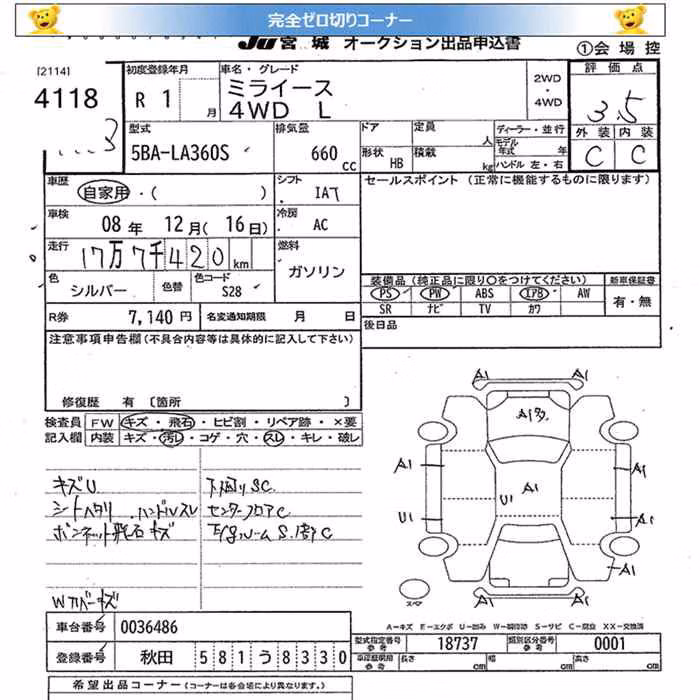 完全ゼロ切りコーナー
JU 宮城 オークション出品申込書
①会場控
[2114]
4118
初度登録年月
R 1 月
車名・グレード
ミライース
4WD L
2WD
・
4WD
評価点
3.5
外装 内装
C C
型式
5BA-LA360S
排気量
660 cc
ドア
定員 人
ディーラー・並行
モデル年式 年
形状 HB
積載 kg
ハンドル 左・右
車歴
自家用・( )
シフト
IAT
セールスポイント (正常に機能するものに限ります)
車検
08年 12月(16日)
冷房
AC
走行
17万7千420km
燃料
ガソリン
色
シルバー
色替
色コード
S28
装備品(純正品に限り○をつけてください)
新車保証書
PS PW ABS エアB AW
SR ナビ TV カワ
有・無
R券 7,140円
名変通知期限 月 日
後日品
注意事項申告欄(不具合内容等は具体的に記入して下さい)
修復歴 有 [箇所 ]
検査員記入欄
FW キズ・飛石・ヒビ割・リペア跡・×要
内装 キズ・汚レ・コゲ・穴・スレ・キレ・破レ
キズU 下廻りSC
シートヘタリ.ハンドルスレ センターフロアC
ボンネット飛石キズ
Wカバーキズ
A1 A1
A1多
A1 A1
U1 A1
U1 A1
A1
A1 A1
スペア
A－キズ E－エクボ U－凹み W－補修跡 S－サビ C－腐食 XX－交換済
車台番号 0036486
型式指定番号 18737 類別区分番号 0001
登録番号 秋田 581う8330
車庫証明用参考 長さ cm 幅 cm 高さ cm
希望出品コーナー(コーナーは各会場により異なります。)